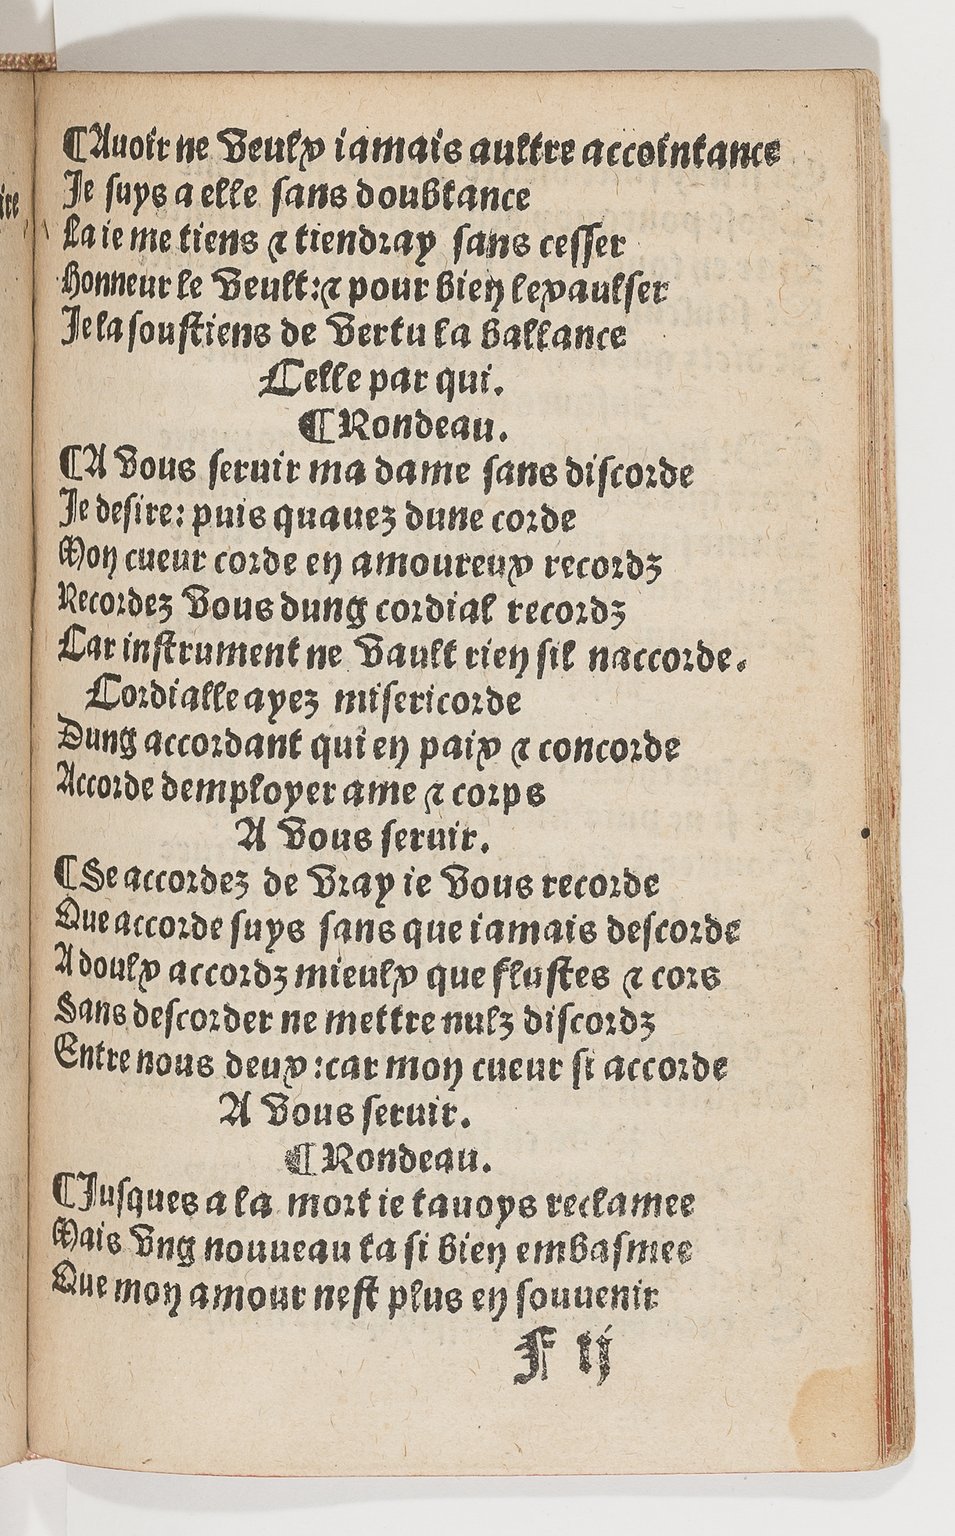 ¶Auoir ne veulx iamais aultre accointance
Je suys a elle sans doubtance
La ie me tiens ⁊ tiendray sans cesser
Honneur le veult:⁊ pour bien lexaulser
Je la soustiens de vertu la ballance
Celle par qui.
¶Rondeau.
¶A vous seruir ma dame sans discorde
Je desire: puis quauez dune corde
Mon cueur corde en amoureux recordz
Recordez vous dung cordial recordz
Car instrument ne vault rien sil naccorde.
Cordialle ayez misericorde
Dung accordant qui en paix ⁊ concorde
Accorde demployer ame ⁊ corps
A vous seruir.
¶Se accordez de vray ie vous recorde
Que accorde suys sans que iamais descorde
A doulx accordz mieulx que flustes ⁊ cors
Sans descorder ne mettre nulz discordz
Entre nous deux:car mon cueur si accorde
A vous seruir.
¶Rondeau.
¶Jusques a la mort ie tauoys reclamee
Mais vng nouueau ta si bien embasmee
Que mon amour nest plus en souuenir
F ij